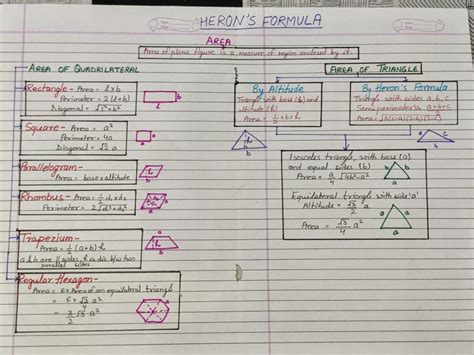 HERON'S FORMULA
AREA
Area of plane figure is a measure of region enclosed by it.
AREA OF QUADRILATERAL
Rectangle - Area = l x b
Perimeter = 2(l+b)
Diagonal = √l²+b²
l
b
Square - Area = a²
Perimeter = 4a
Diagonal = √2 a
a
Parallelogram -
Area = base x altitude
h
b
Rhombus - Area = 1/2 d₁ x d₂
Perimeter = 2√d₁²+d₂²
Trapezium -
Area = 1/2 (a+b) h
a & b are || sides, h is dis b/w two
parallel sides
a
h
b
Regular Hexagon -
Area = 6 x Area of an equilateral triangle
= 6 x √3/4 a²
= 3/2 √3 a²
a
AREA OF TRIANGLE
By Altitude
Triangle with base (b) and
altitude (h)
Area = 1/2 x b x h
h
b
By Heron's Formula
Triangle with sides a, b, c
Semi perimeter/s = a+b+c
Area = √s(s-a)(s-b)(s-c)
a
c
b
Isosceles triangle, with base (a)
and equal sides (b)
Area = a/4 √4b²-a²
b
b
a
Equilateral triangle with side 'a'
Altitude = √3/2 a
Area = √3/4 a²
a
a
a